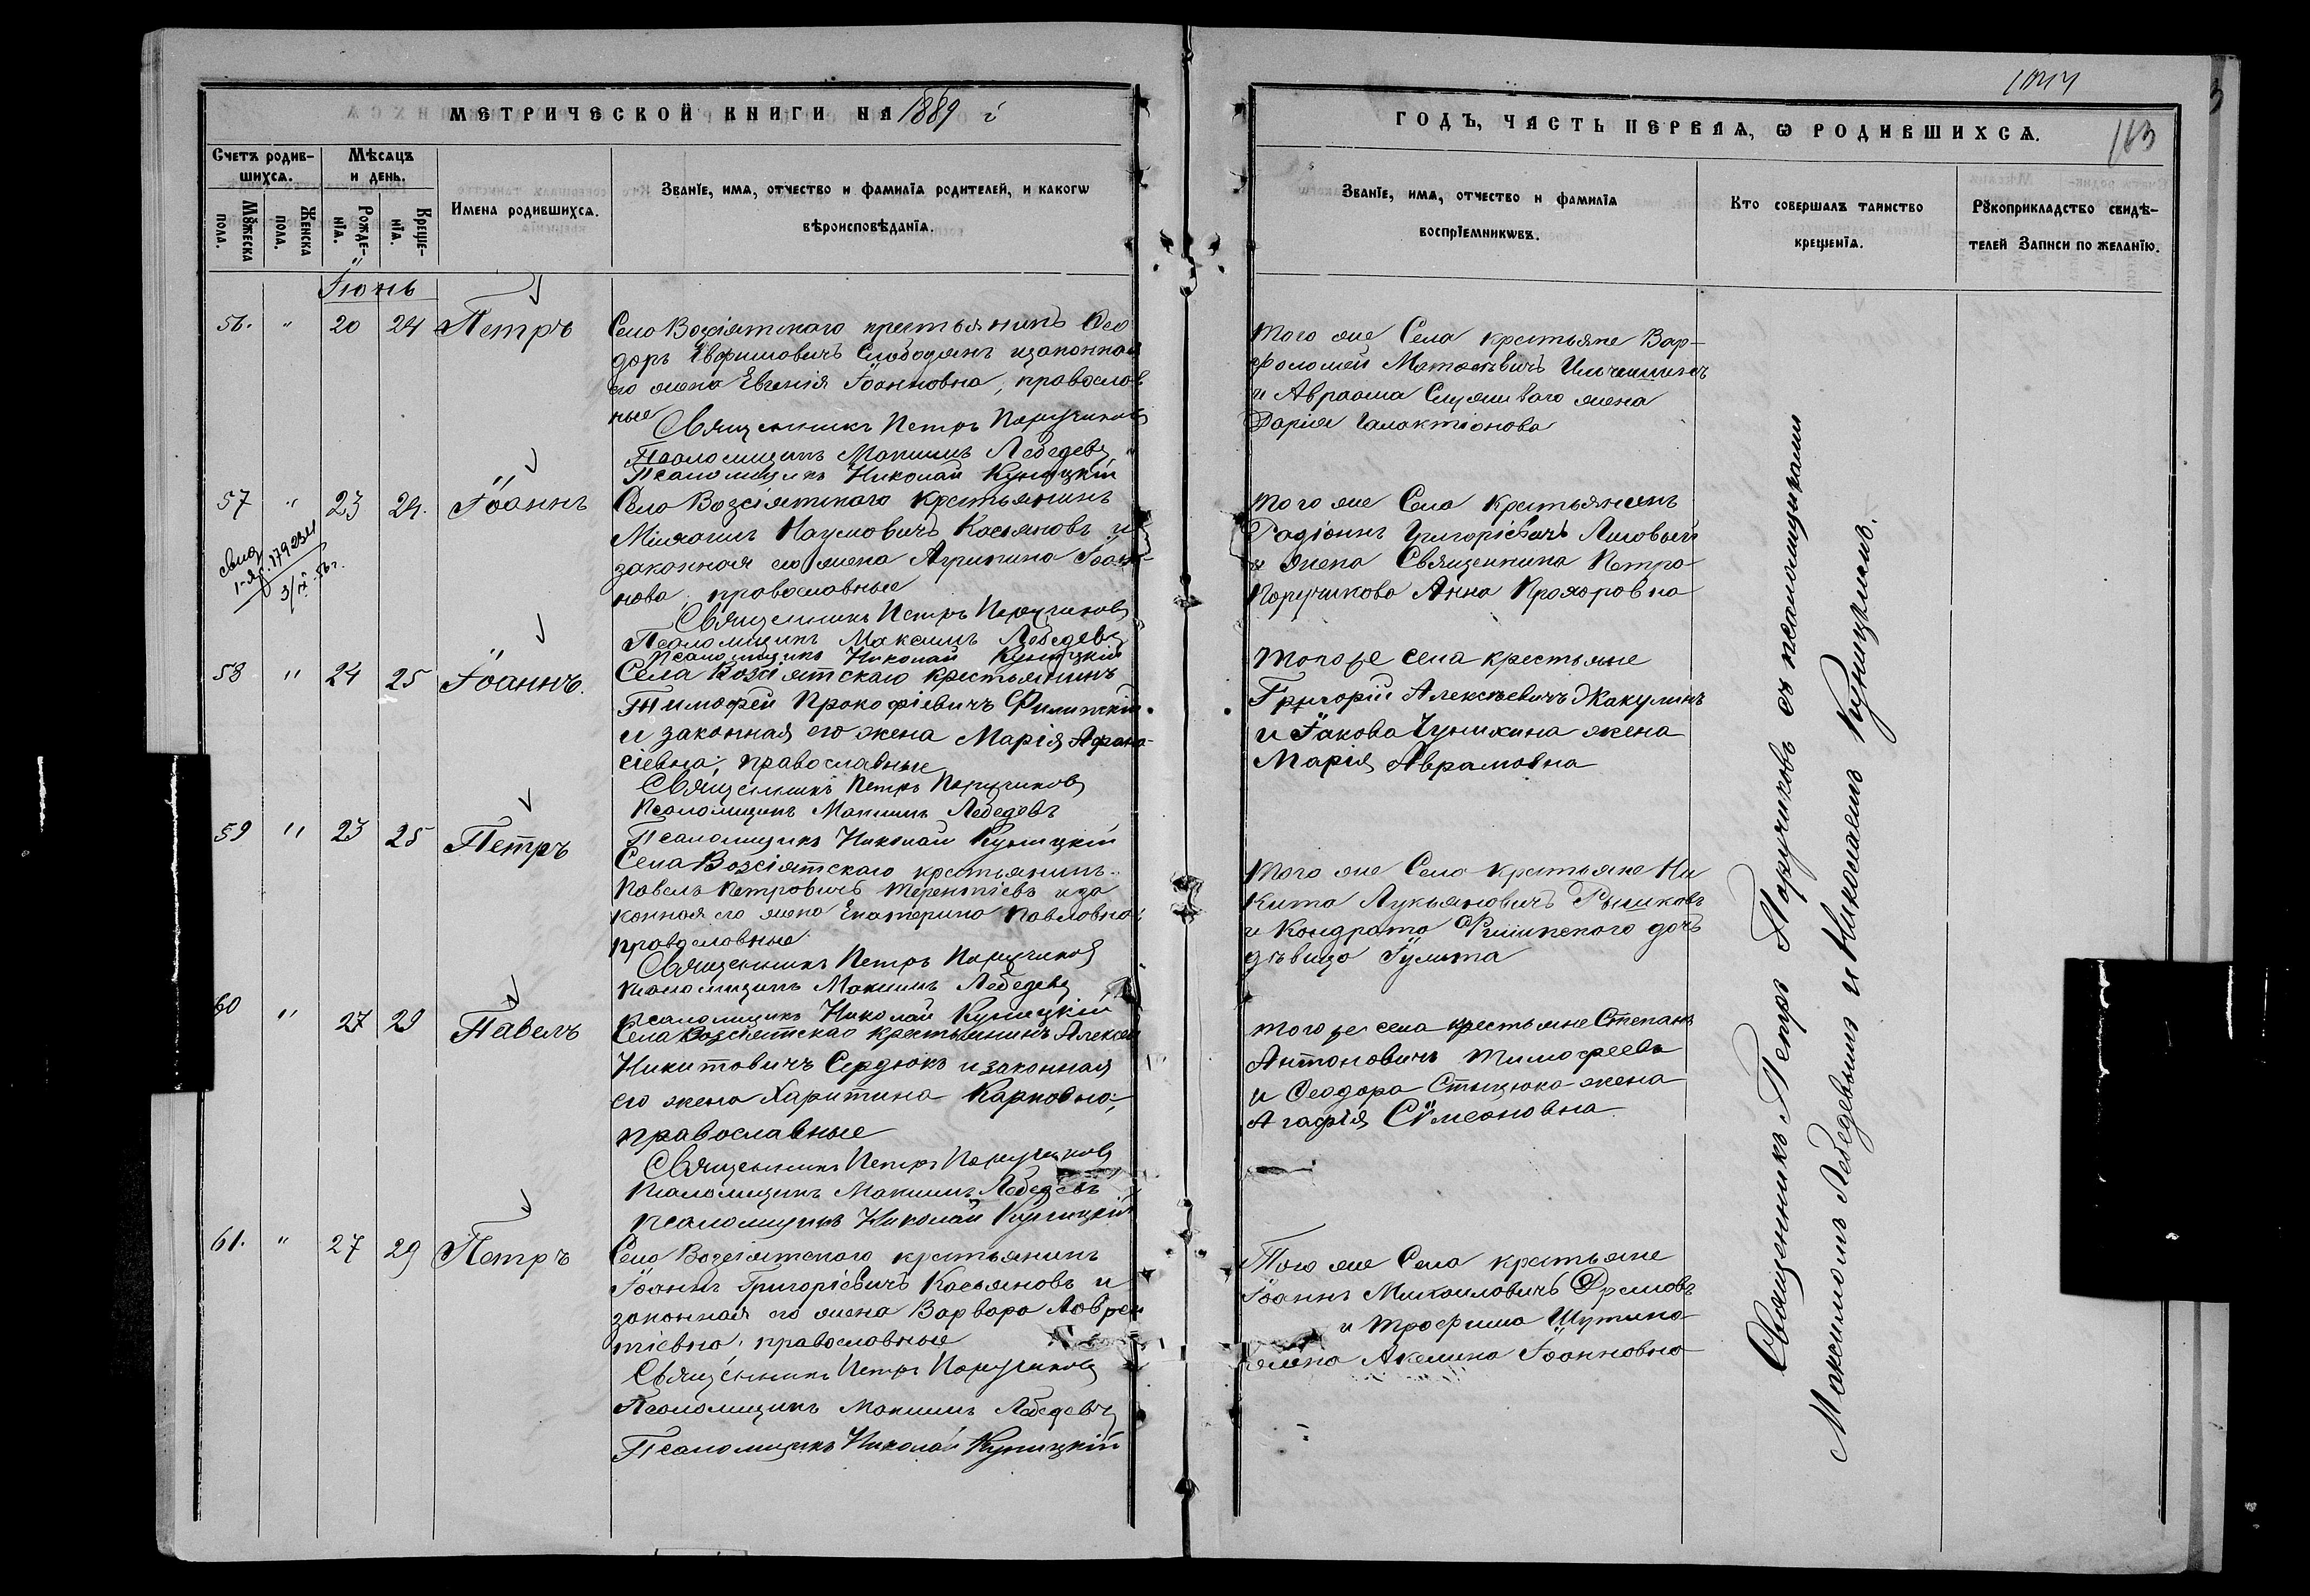 МЕТРИЧЕСКОЙ КНИГИ НА 1889 й
Счетъ родив-
шихся.
Мѣсяцъ
и день.
Мꙋжеска
пола.
Женска
пола.
Рожде-
нїя.
Креще-
нїя.
Имена родившихся.
Званїе, имя, отчество и фамилїя родителей, и какогѡ
вѣроисповѣданїя.
Іюнь
56. " 20 24 Петръ
Села Возсіятскаго крестьянинъ Ѳео
доръ Евфимовичъ Слободянъ и законная
его жена Евгенія Іоанновна, православ
ные
Священникъ Петръ Поручиковъ
Псаломщикъ Максимъ Лебедевъ
Псаломщикъ Николай Куницкій
57 " 23 24. Іоаннъ
свид
Села Возсіятскаго крестьянинъ
Михаилъ Наумовичъ Касьяновъ и
законная его жена Агрипина Іоан-
нова, православные
Священникъ Петръ Поручиковъ
Псаломщикъ Максимъ Лебедевъ
Псаломщикъ Николай Куницкій
58 " 24 25 Іоаннъ.
Села Возсіятскаго крестьянинъ
Тимофей Прокофіевичъ Филипскій
и законная его жена Марія Афана-
сіевна, православные
Священникъ Петръ Поручиковъ
Псаломщикъ Максимъ Лебедевъ
Псаломщикъ Николай Куницкій
59 " 23 25 Петръ
Села Возсіятскаго крестьянинъ
Павелъ Петровичъ Терентіевъ и за
конная его жена Екатерина Павловна
православные
Священникъ Петръ Поручиковъ
Псаломщикъ Максимъ Лебедевъ
Псаломщикъ Николай Куницкій
60 " 27 29 Павелъ
Села Возсіятскаго крестьянинъ Алексей
Никитовичъ Сердюкъ и законная
его жена Харитина Карповна,
православные
Священникъ Петръ Поручиковъ
Псаломщикъ Максимъ Лебедевъ
Псаломщикъ Николай Куницкій
61. " 27 29 Петръ
Села Возсіятскаго крестьянинъ
Іоаннъ Григоріевичъ Касьяновъ и
законная его жена Варвара Лаврен
тіевна, православные
Священникъ Петръ Поручиковъ
Псаломщикъ Максимъ Лебедевъ
Псаломщикъ Николай Куницкій
163
ГОДЪ, ЧАСТЬ ПЕРВАЯ, Ѡ РОДИВШИХСЯ.
Званїе, имя, отчество и фамилїя
воспрїемникѡвъ.
Кто совершалъ таинство
крещенїя.
Рꙋкоприкладство свидѣ-
телей Записи по желанїю.
Того же Села крестьяне Вар-
фоломей Матвѣевичъ
и Авраама жена
Дарія Галактіонова
Того же Села крестьянинъ
Радіонъ Григоріевичъ Лиловый
и жена Священника Петра
Поручикова Анна Прохоровна
Того же села крестьяне
Григорій Алексѣевичъ Жакулинъ
и Іакова Чунихина жена
Марія Аврамовна
Того же Села крестьяне Ни
кита Лукьяновичъ Рыжковъ
и Кондрата Филипского дочь
дѣвица Іулита
Того же села крестьяне Степанъ
Антоновичъ Тимофеевъ
и Ѳеодора Стецюка жена
Агафія Сѵмеоновна
Того же Села крестьяне
Іоаннъ Михаиловичъ Дремовъ
и Трофима Шутина
жена Акелина Іоанновна
Священникъ Петръ Поручиковъ съ псаломщиками
Максимомъ Лебедевымъ и Николаемъ Куницкимъ.